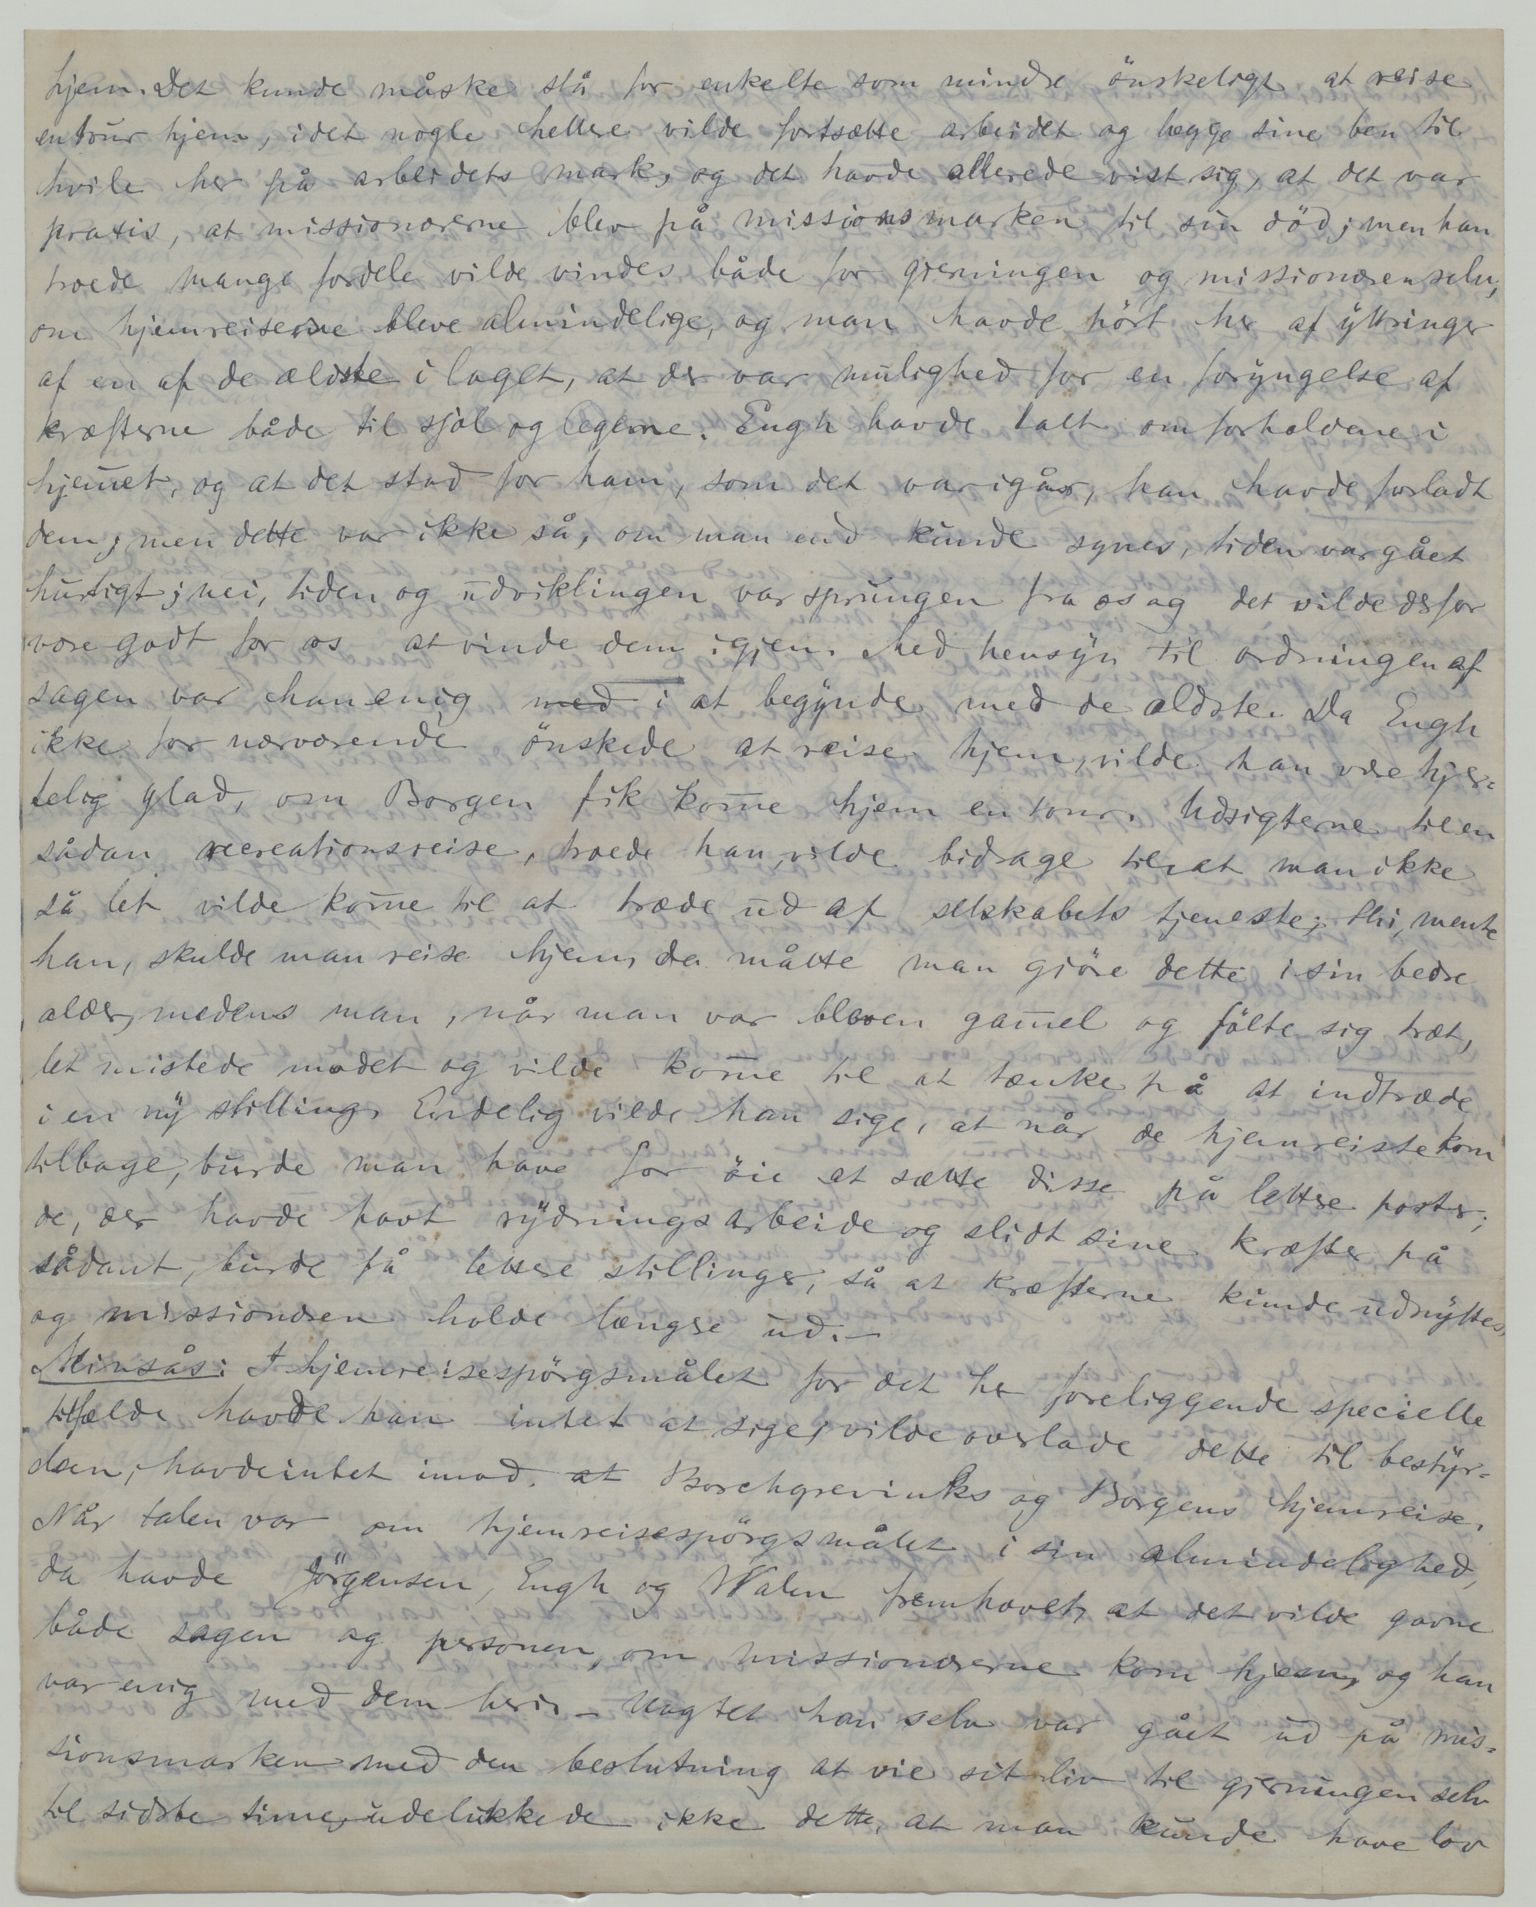 hjem. Det kunde måske stå for enkelte som mindre önskeligt at reise
en tour hjem, idet nogle hellere vilde fortsætte arbeidet og lægge sine ben til
hvile her på arbeidets mark, og det havde allerede vist sig, at det var
praxis, at missionærerne blev på missionsmarken til sin död; men han
troede mange fordele vilde vindes både for gjerningen og missionæren selv,
om hjemreiserne bleve almindelige, og man havde hört her af yttringer
af en af de ældste i laget, at der var mulighed for en foryngelse af
kræfterne både til sjæl og legeme. Engh havde talt om forholdene i
hjem̅et, og at det stod for ham, som det var igår, han havde forladt
dem; men dette var ikke så, om man end kunde synes, tiden var gået
hurtigt; nei, tiden og udviklingen var sprungen fra os og det vilde derfor
være godt for os at vinde dem igjen. Med hensyn til ordningen af
sagen var han enig med i at begynde med de ældste. Da Engh
ikke for nærværende önskede at reise hjem, vilde han være hjer=
telig glad, om Borgen fik kom̅e hjem en tour. Udsigterne til en
sådan recreationsreise, troede han, vilde bidrage til at man ikke
så let vilde kom̅e til at træde ud af selskabets tjeneste; thi, mente
han, skulde man reise hjem, da måtte man gjöre dette i sin bedre
alder, medens man, når man var bleven gam̅el og fölte sig træt,
let mistede modet og vilde kom̅e til at tænke på at indtræde
i en ny stilling. Endelig vilde han sige, at når de hjemreiste kom
tilbage, burde man have for öie at sætte disse på lettere poster;
de, der havde havt rydningsarbeide og slidt sine kræfter på
sådant, burde få lettere stillinger, så at kræfterne kunde udnyttes,
og missionæren holde længere ud. —
Minsås: I hjemreisespörgsmålet for det her foreliggende specielle
tilfælde havde han intet at sige, vilde overlade dette til bestyr=
elsen, havde intet imod. at Borchgrevinks og Borgens hjemreise.
Når talen var om hjemreisespörgsmålet i sin almindelighed,
da havde Jörgensen, Engh og Walen fremhævet, at det vilde gavne
både sagen og personen, om missionærerne kom hjem, og han
var enig med dem heri. — Uagtet han selv var gået ud på mis=
sionsmarken med den beslutning at vie sit liv til gjerningen selv
til sidste time, udelukkede ikke dette, at man kunde have lov